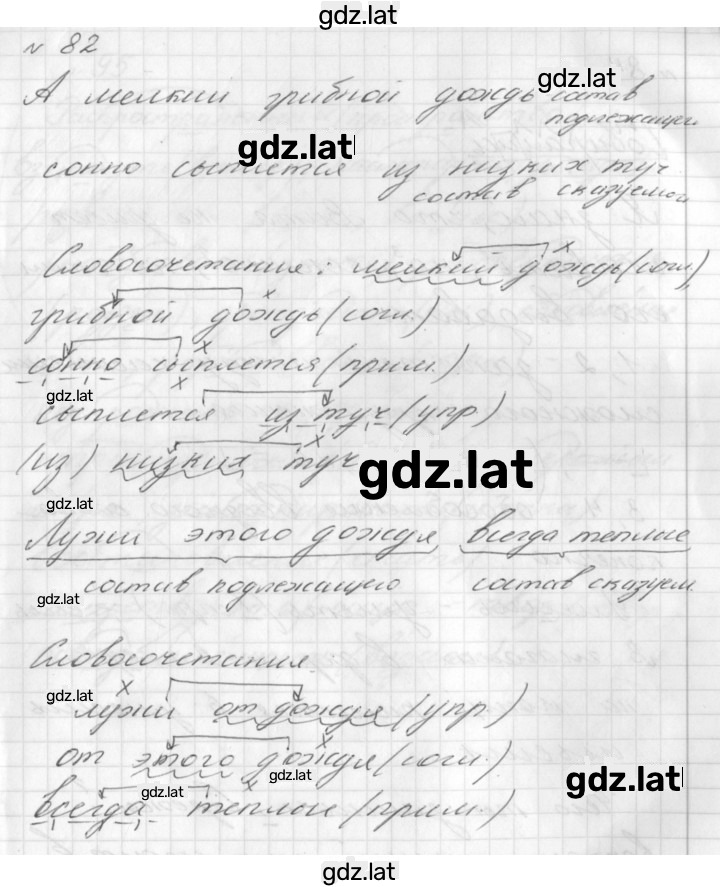 gdz.lat
№ 82
gdz.lat
А мелкий грибной дождь состав
подлежащего
gdz.lat
сонно сыплется из низких туч
состав сказуемого
Словосочетания: мелкий дождь (согл.)
грибной дождь (согл.)
сонно сыплется (прим.)
gdz.lat
сыплется из туч (упр)
(из) низких туч
gdz.lat
gdz.lat
Лужи этого дождя всегда теплые
gdz.lat
состав подлежащего состав сказуем.
Словосочетания
лужи от дождя (упр.)
от этого дождя (согл.)
gdz.lat
gdz.lat
gdz.lat
всегда теплые (прим.)
gdz.lat